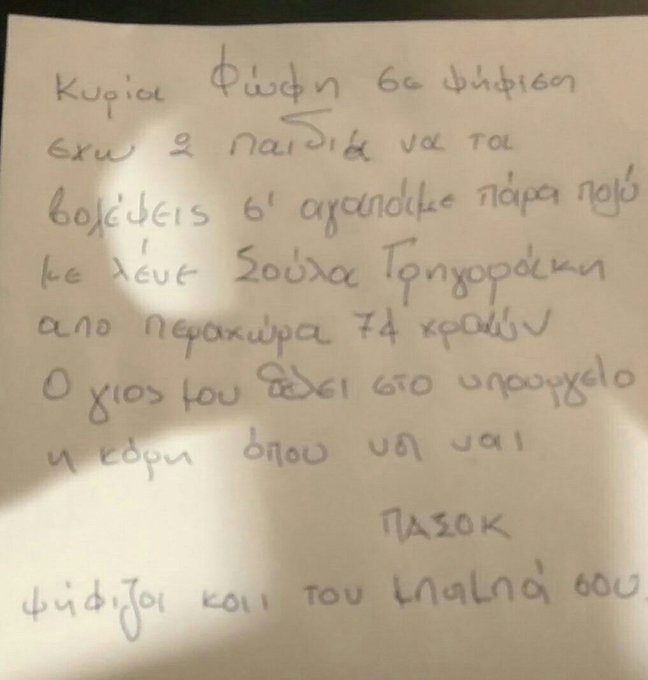 Κυρία Φώφη σε ψήφιση
εχω 2 παιδιά να τα
βολέψεις σ' αγαπάμε πάρα πολύ
με λένε Σούλα Γρηγοράκη
απο περαχώρα 74 χρονών
Ο γιος μου θελει στο υπουργείο
η κόρη όπου να ναι
ΠΑΣΟΚ
ψήφιζα και του μπαμπά σου.